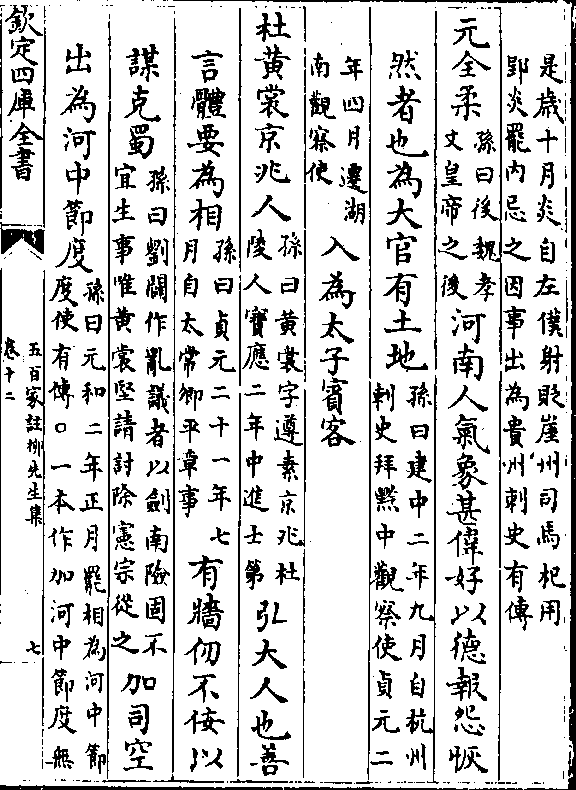 是歲十月炎自左僕射貶崖州司馬杞用
郢炎罷內忌之因事出為貴州刺史有傳
元全柔
孫曰後魏孝
文皇帝之後
河南人氣象甚偉好以德報怨恢
然者也為大官有土地
孫曰建中二年九月自杭州
刺史拜黔中觀察使貞元二
年四月遷湖
南觀察使
入為太子賓客
杜黃裳京兆人
孫曰黃裳字遵素京兆杜
陵人寶應二年中進士第
弘大人也善
言體要為相
孫曰貞元二十一年七
月自太常卿平章事
有牆仞不佞以
謀克蜀
孫曰劉闢作亂議者以劍南險固不
宜生事唯黃裳堅請討除憲宗從之
加司空
出為河中節度
孫曰元和二年正月罷相為河中節
度使有傳○一本作加河中節度無
欽定四庫全書
五百家註柳先生集
卷十二
七